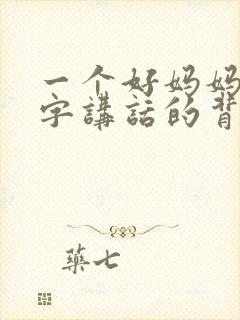 一个好妈妈
字講話的背
藥七